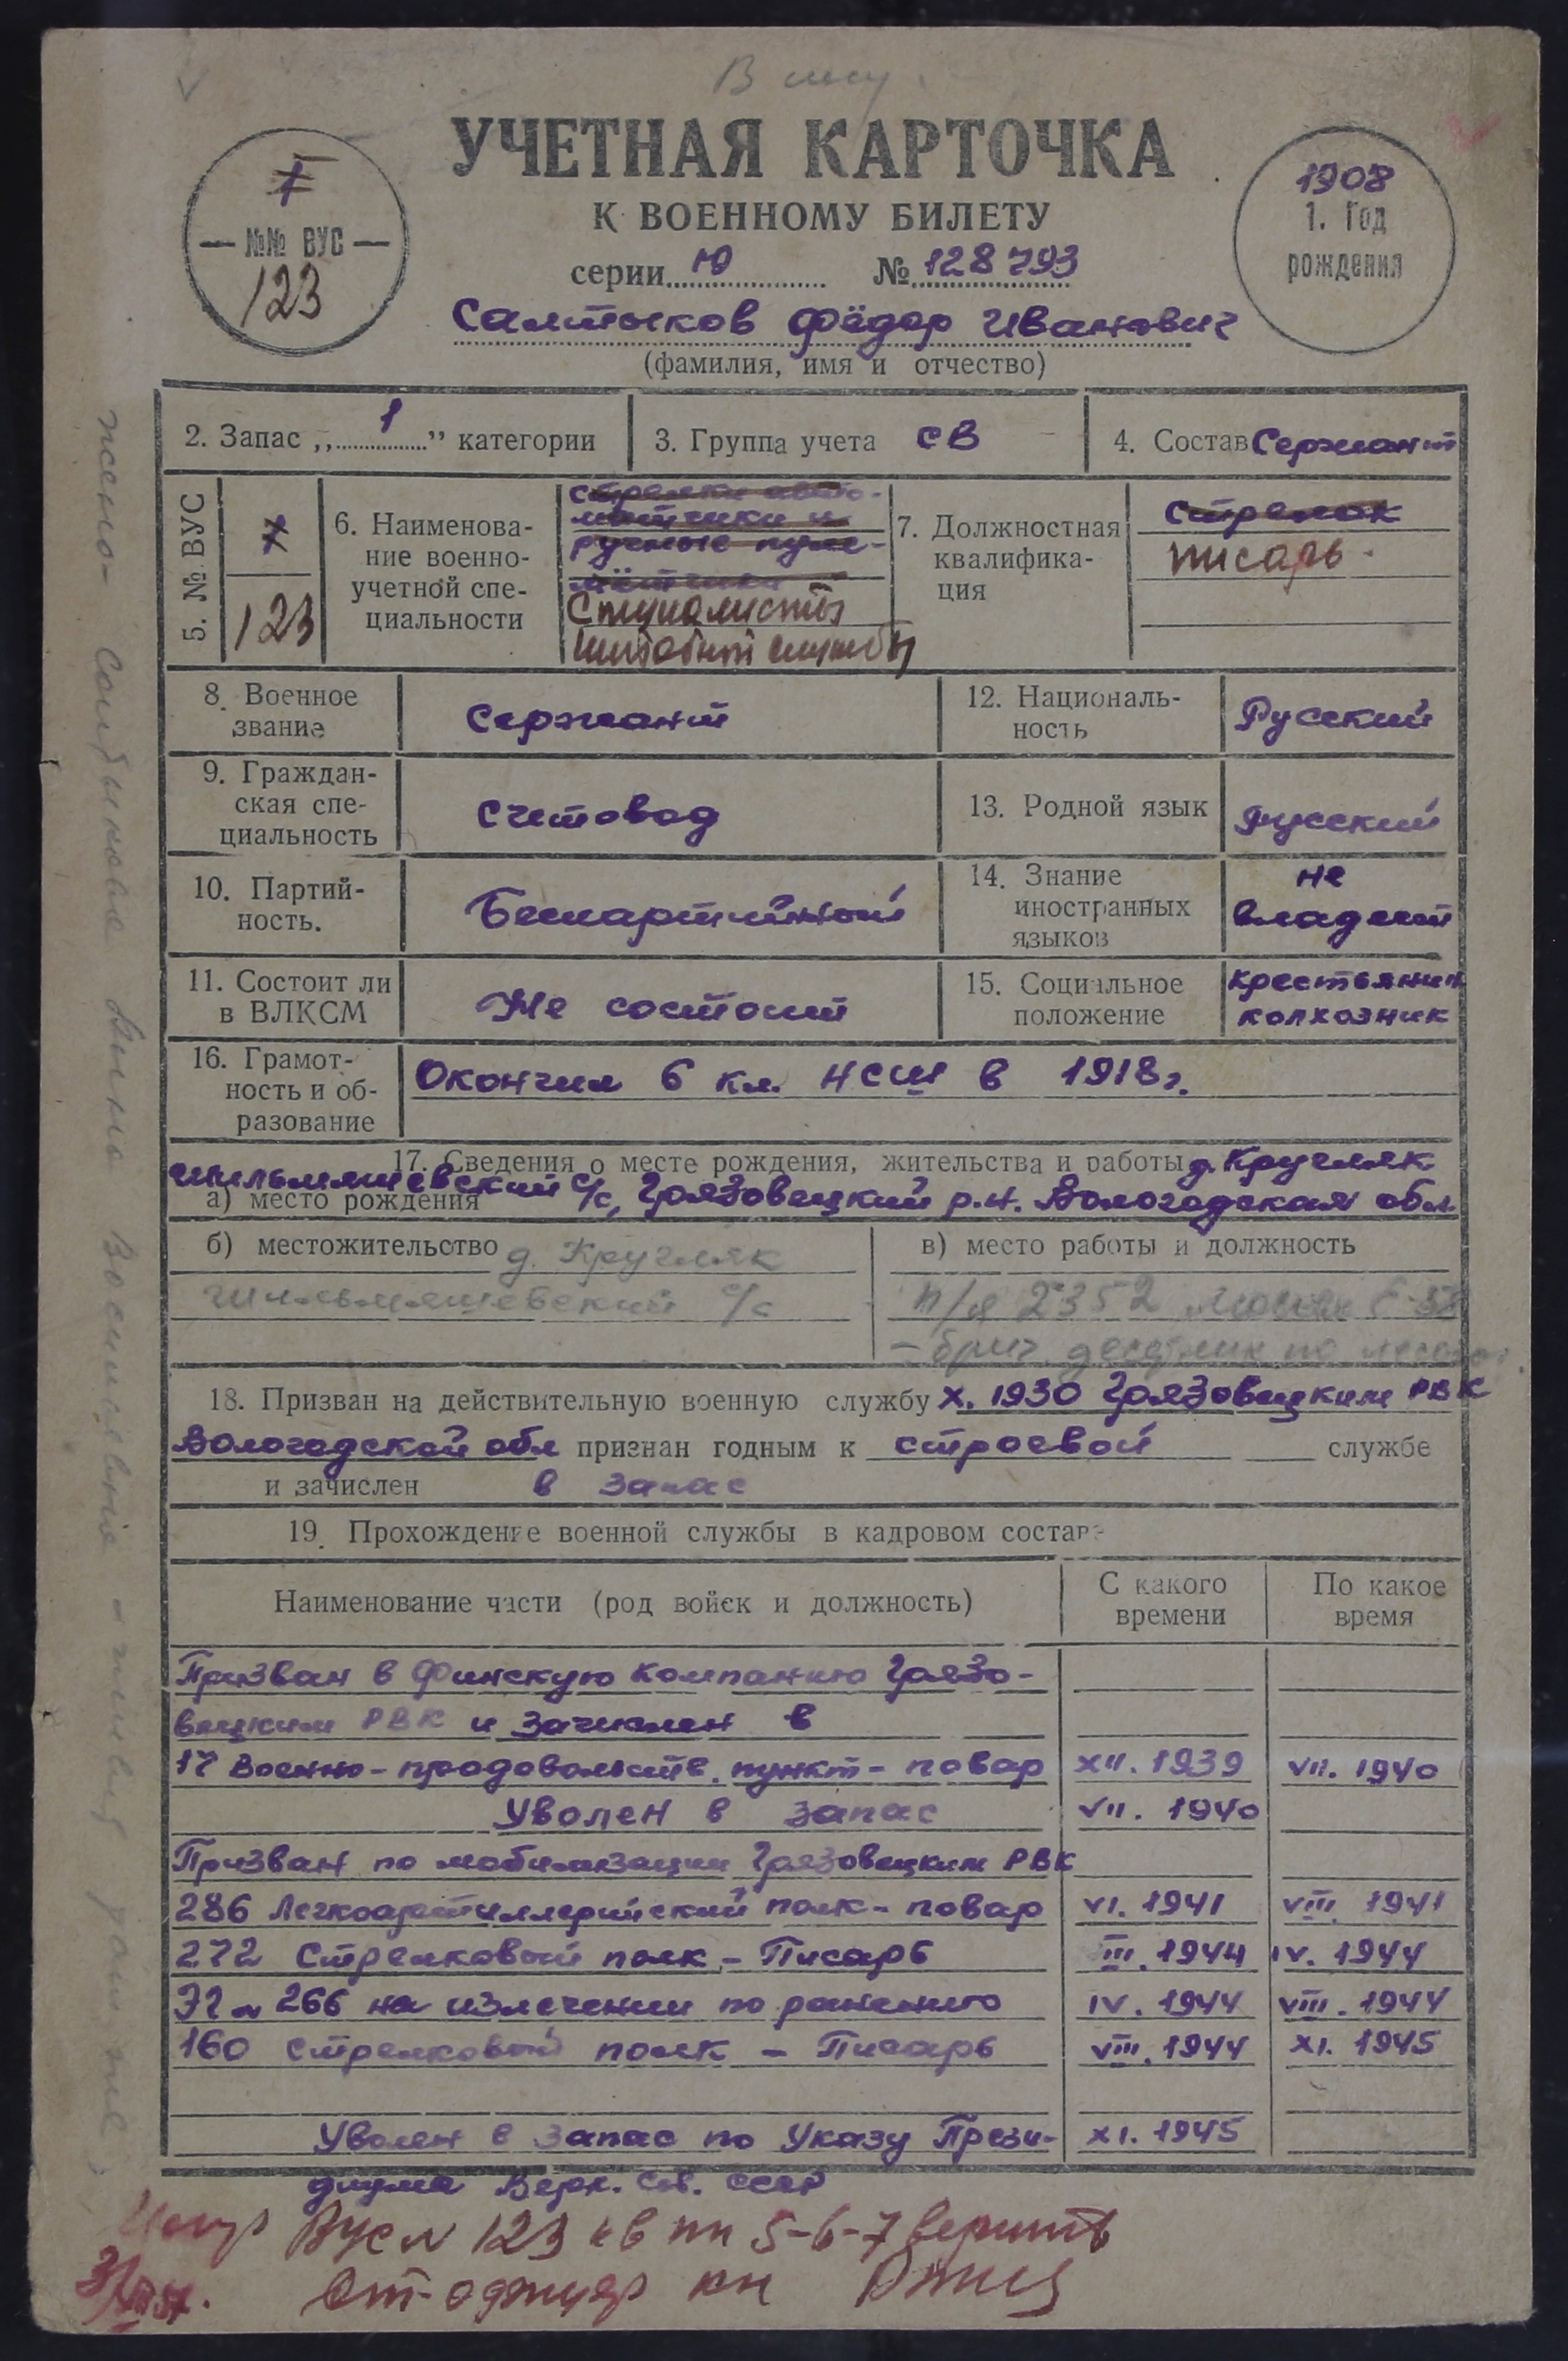 УЧЕТНАЯ КАРТОЧКА
К ВОЕННОМУ БИЛЕТУ
серии Ю № 128793
1
№№ ВУС
123
1908
1. Год
рождения
Салтыков Фёдор Иванович
(фамилия, имя и отчество)
2. Запас „1” категории
3. Группа учета СВ
4. Состав Сержант
5. № ВУС
1
123
6. Наименова-
ние военно-
учетной спе-
циальности
стрелки авто-
матчики и
ручные пуле-
мётчики
Специалисты
штабной службы
7. Должностная
квалифика-
ция
стрелок
писарь
8. Военное
звание
Сержант
12. Националь-
ность
Русский
9. Граждан-
ская спе-
циальность
Счетовод
13. Родной язык
Русский
10. Партий-
ность.
Беспартийный
14. Знание
иностранных
языков
не
владеет
11. Состоит ли
в ВЛКСМ
Не состоит
15. Социальное
положение
крестьянин
колхозник
16. Грамот-
ность и об-
разование
Окончил 6 кл. НСШ в 1918г.
17. Сведения о месте рождения, жительства и работы д. Кругляк
а) место рождения с/с, Грязовецкий р.н. Вологодская обл.
б) местожительство д. Кругляк
с/с
в) место работы и должность
п/я 2352 Москва
18. Призван на действительную военную службу X. 1930 Грязовецким РВК
Вологодской обл признан годным к строевой службе
и зачислен в запас
19. Прохождение военной службы в кадровом составе
Наименование части (род войск и должность)
С какого
времени
По какое
время
Призван в Финскую компанию Грязо-
вецким РВК и зачислен в
17 Военно-продовольств. пункт - повар XII. 1939 VII. 1940
Уволен в запас VII. 1940
Призван по мобилизации Грязовецким РВК
286 Легкоартиллерийский полк - повар VI. 1941 VIII 1941
272 Стрелковый полк - Писарь III. 1944 IV. 1944
ЭГ N 266 на излечении по ранению IV. 1944 VIII. 1944
160 Стрелковый полк - Писарь VIII. 1944 XI. 1945
Уволен в запас по Указу Прези- XI. 1945
диума Верх. Сов. СССР
ВУС N 123 кв пп 5-6-7
жена - Салтыкова Васильевна